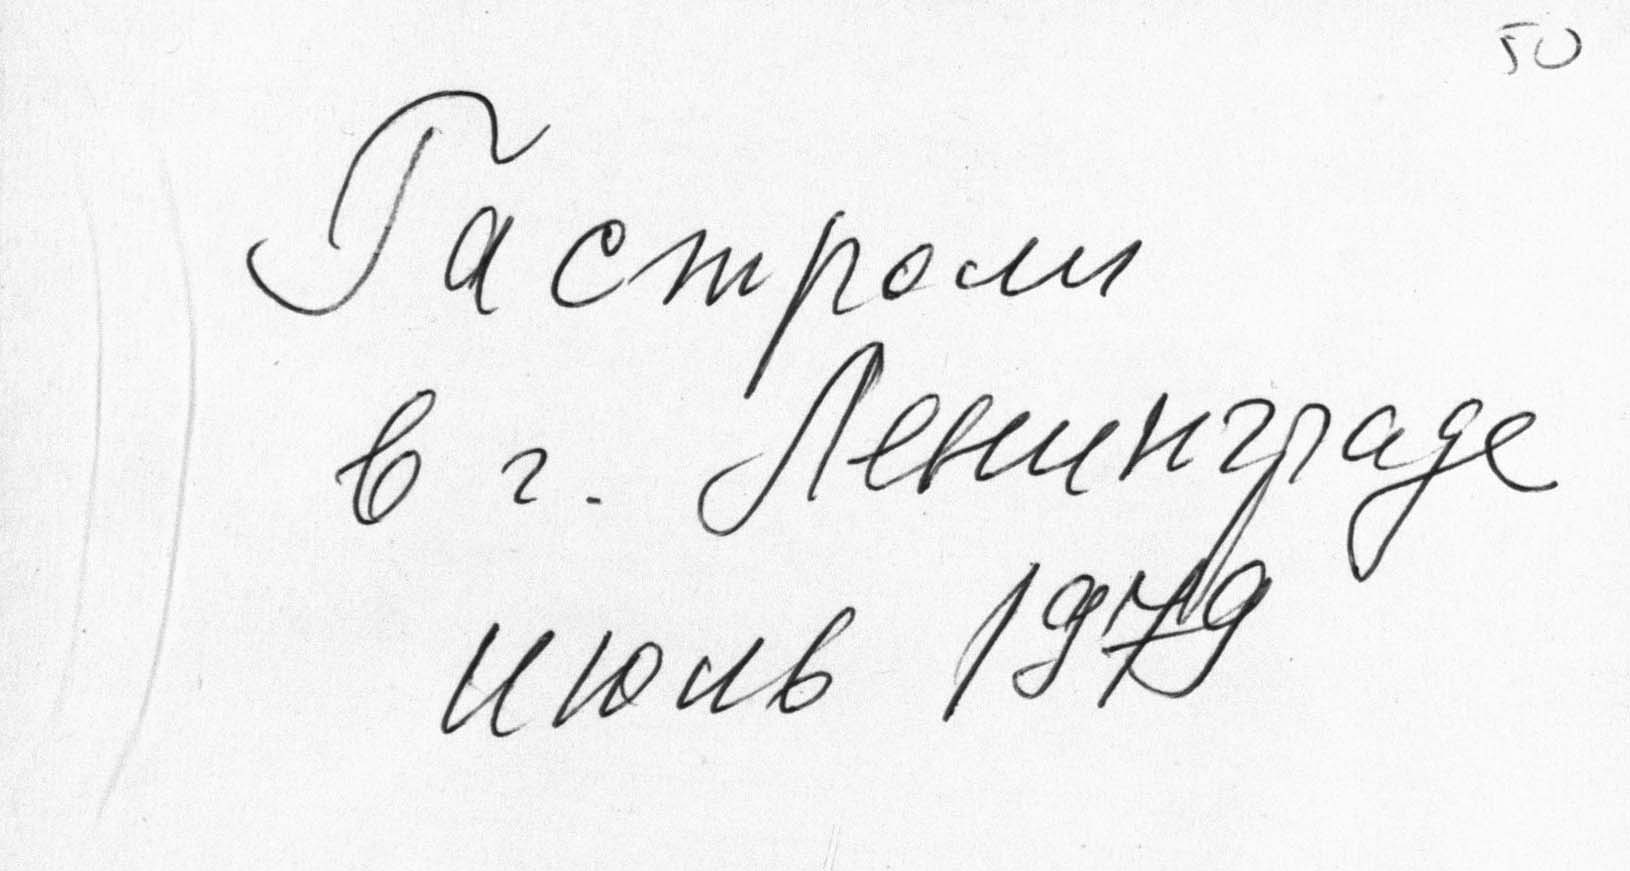 50
Гастроли
в г. Ленинграде
июль 1979